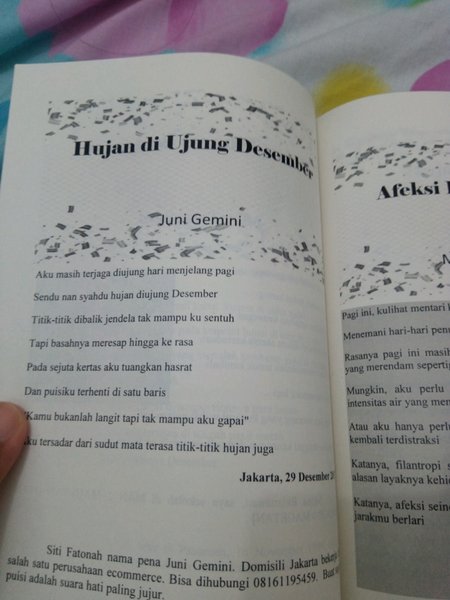 Hujan di Ujung Desember
Juni Gemini
Aku masih terjaga diujung hari menjelang pagi
Sendu nan syahdu hujan diujung Desember
Titik-titik dibalik jendela tak mampu ku sentuh
Tapi basahnya meresap hingga ke rasa
Pada sejuta kertas aku tuangkan hasrat
Dan puisiku terhenti di satu baris
"Kamu bukanlah langit tapi tak mampu aku gapai"
tersadar dari sudut mata terasa titik-titik hujan juga
Jakarta, 29 Desember
Siti Fatonah nama pena Juni Gemini. Domisili Jakarta
salah satu perusahaan ecommerce. Bisa dihubungi 08161195459.
puisi adalah suara hati paling jujur.
Afeksi
Pagi ini, kulihat mentari
Menemani hari-hari
Rasanya pagi ini masih
yang merendam
Mungkin, aku perlu
intensitas air yang
Atau aku hanya
kembali terdistraksi
Katanya, filantropi
alasan layaknya
Katanya, afeksi
jarakmu berlari